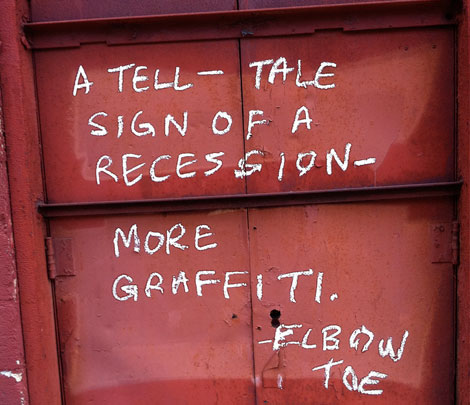 A TELL- TALE
SIGN OF A
RECESSION-
MORE
GRAFFITI.
-ELBOW
TOE